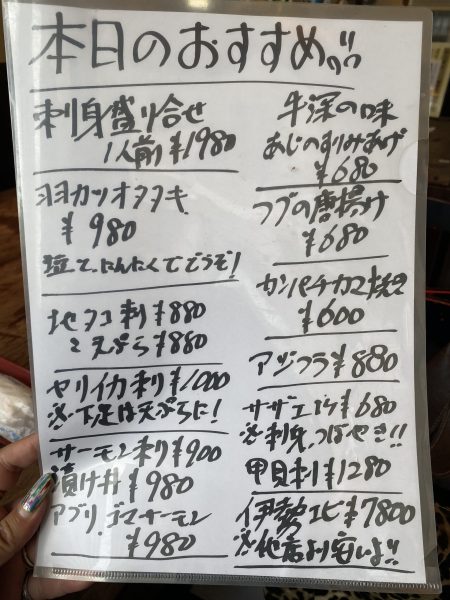 本日のおすすめ!!
刺身盛り合せ
1人前 ¥1980
羽カツオタタキ
¥980
塩て、にんにくでどうぞ!
地タコ刺¥880
〃天ぷら¥880
ヤリイカ刺¥1000
※下足は天ぷらに!
サーモン刺¥900
漬け丼¥980
アブリ、ゴマサーモン
¥980
牛深の味
あじのすりみあげ
¥680
つブの唐揚げ
¥680
カンパチカマ焼
¥600
アジフライ¥880
サザエ ¥680
※刺身、つぼやき!!
甲貝刺¥1280
伊勢エビ¥7800
※他店より安いよ!!